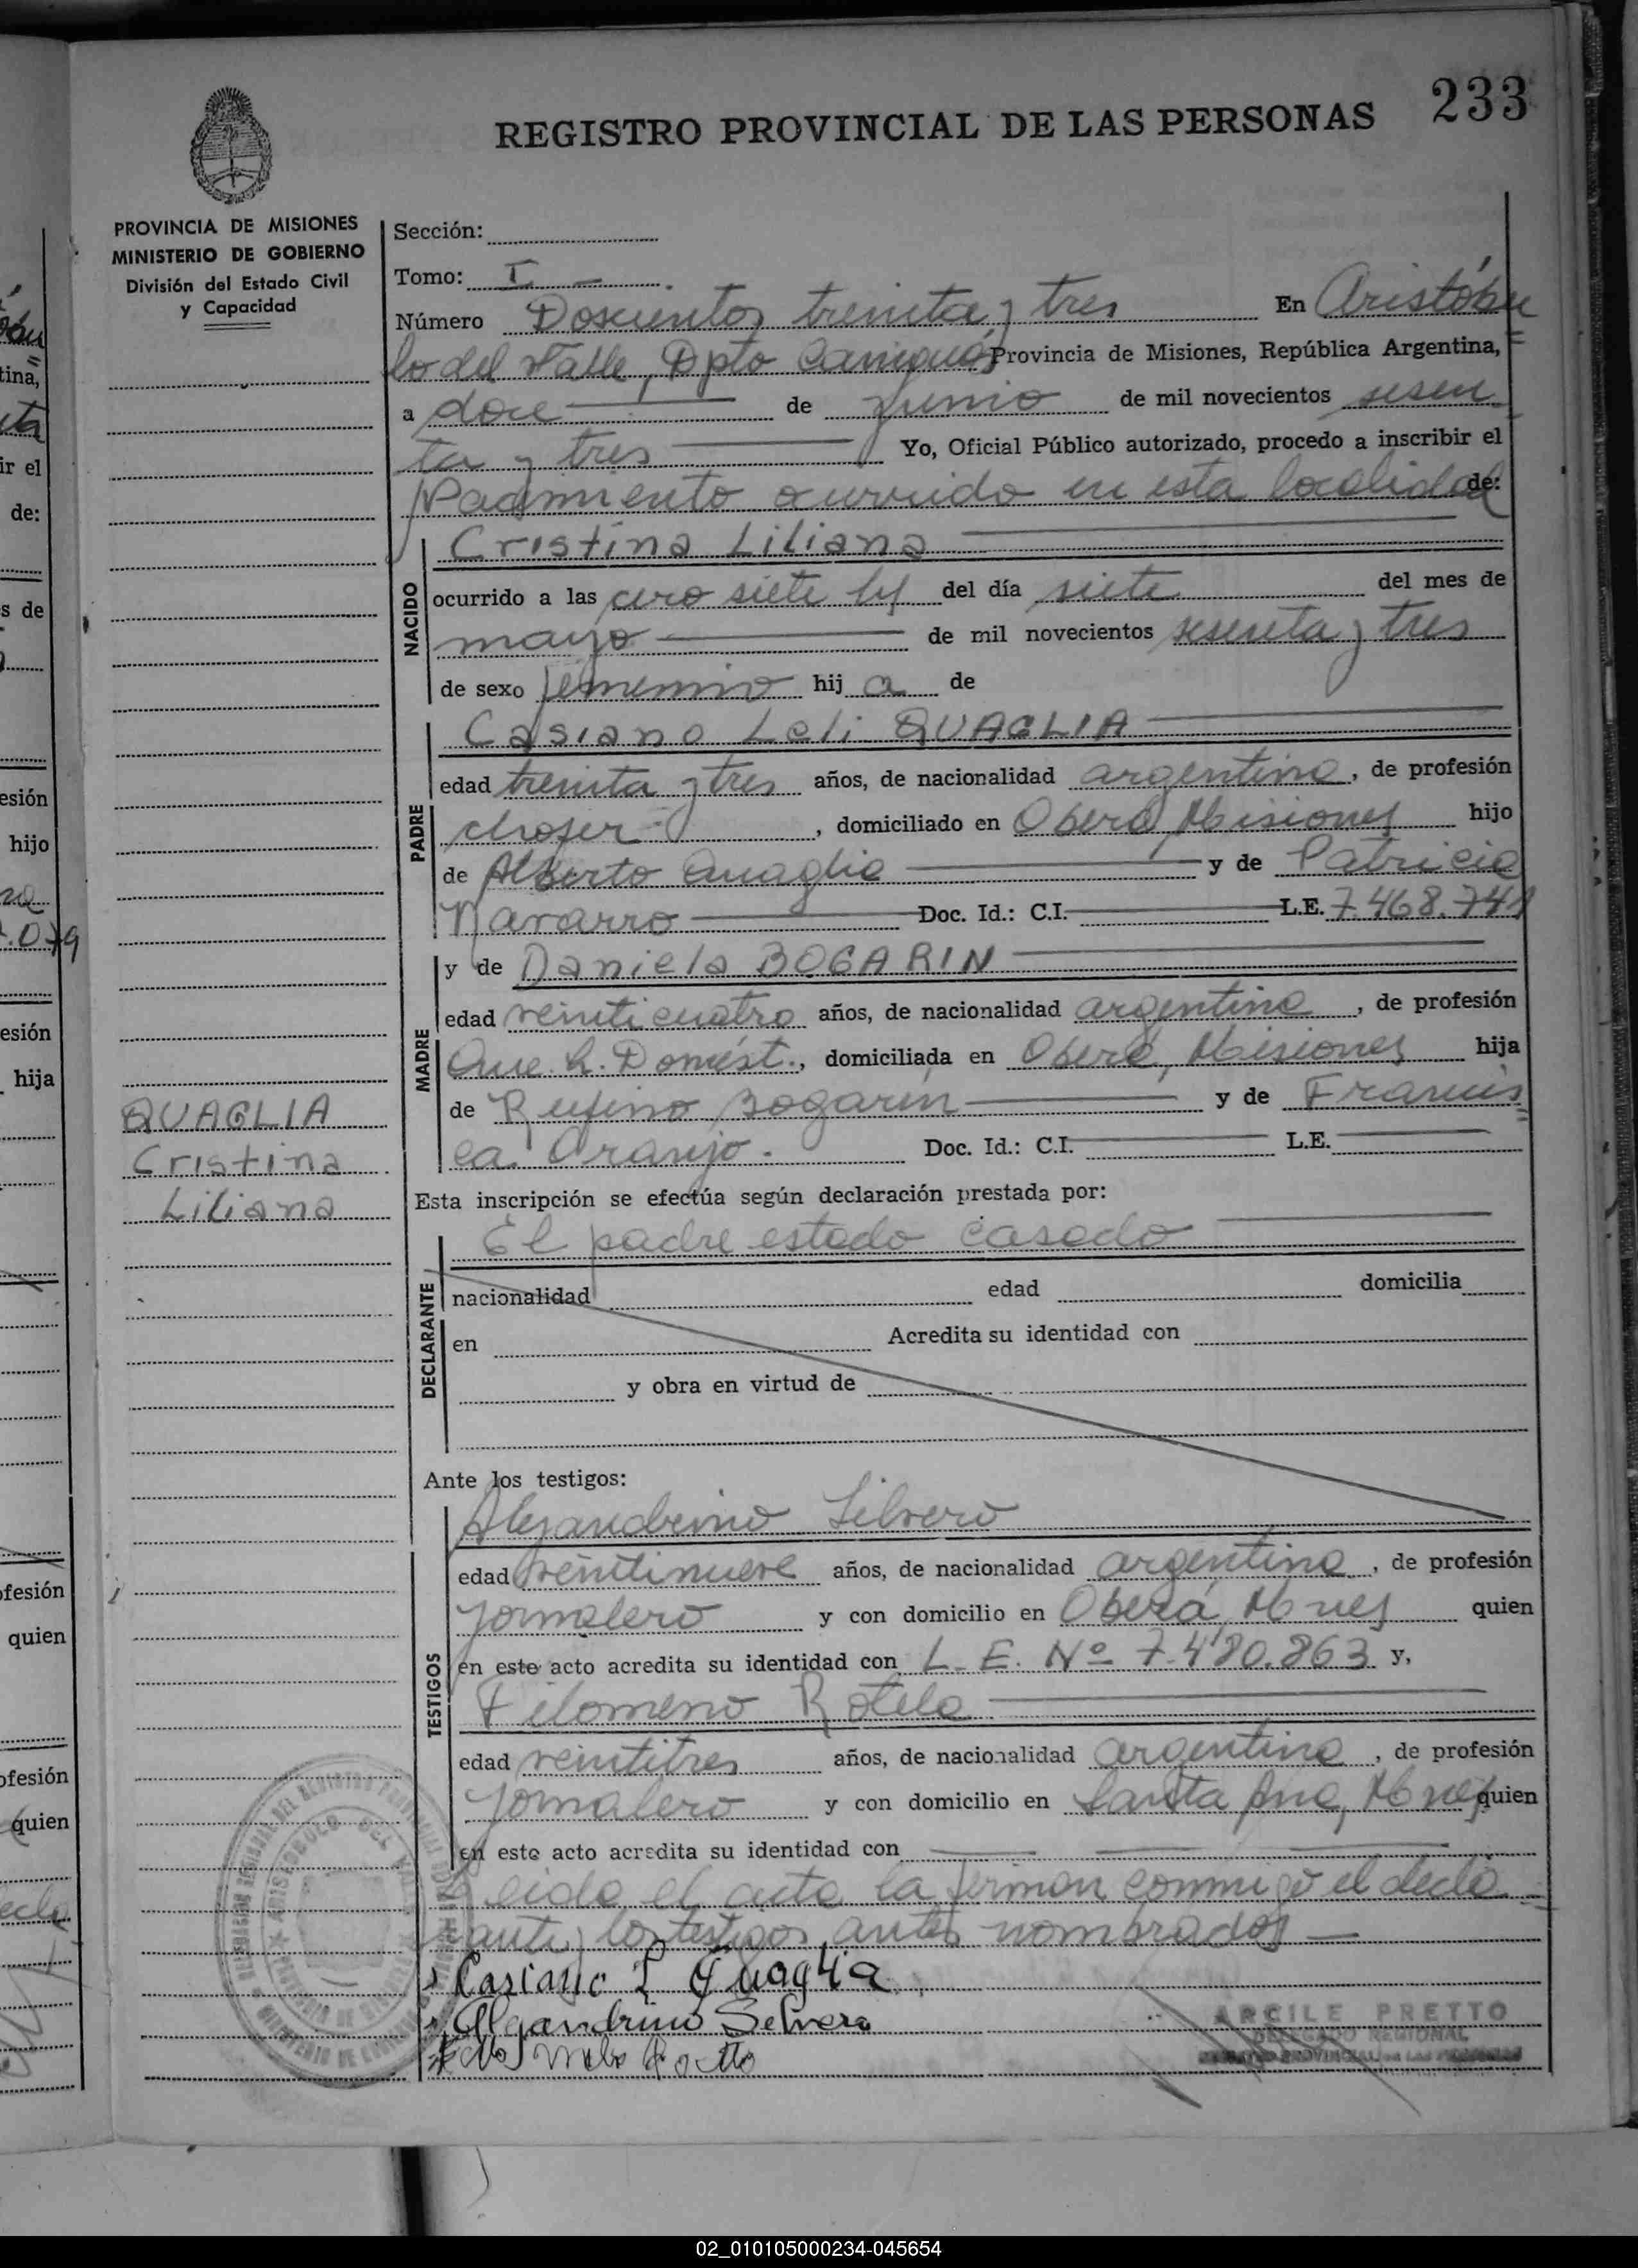 233
REGISTRO PROVINCIAL DE LAS PERSONAS
PROVINCIA DE MISIONES
MINISTERIO DE GOBIERNO
División del Estado Civil
y Capacidad
Sección:
Tomo: I
Número Doscientos treinta y tres En Aristóbu
lo del Valle, Dpto Cainguás Provincia de Misiones, República Argentina,
a doce de junio de mil novecientos sesen
ta y tres Yo, Oficial Público autorizado, procedo a inscribir el
Nacimiento ocurrido en esta localidad de:
NACIDO
Cristina Liliana
ocurrido a las cero siete hs del día siete del mes de
mayo de mil novecientos sesenta y tres
de sexo femenino hij a de
PADRE
Casiano Leli QUAGLIA
edad treinta y tres años, de nacionalidad argentina, de profesión
chofer, domiciliado en Oberá Misiones hijo
de Alberto Quaglia y de Patricia
Navarro Doc. Id.: C.I. L.E. 7.468.741
MADRE
y de Daniela BOGARIN
edad veinticuatro años, de nacionalidad argentina, de profesión
Que. h. Domést., domiciliada en Oberá, Misiones hija
de Rufino Bogarin y de Francis
ca Araujo. Doc. Id.: C.I. L.E.
QUAGLIA
Cristina
Liliana
Esta inscripción se efectúa según declaración prestada por:
DECLARANTE
El padre estado casado
nacionalidad edad domicilia
en Acredita su identidad con
y obra en virtud de
Ante los testigos:
TESTIGOS
Alejandrino Silvero
edad veintinueve años, de nacionalidad argentina, de profesión
Jornalero y con domicilio en Oberá, Mnes quien
en este acto acredita su identidad con L. E. Nº 7.480.863 y,
Filomeno Rotela
edad veintitres años, de nacionalidad argentina, de profesión
Jornalero y con domicilio en Santa Ana, Mnes quien
en este acto acredita su identidad con
Leida el acta la firman conmigo el decla
rante y los testigos antes nombrados
Casiano L Quaglia
Alejandrino Selvero
ARCILE PRETTO
DELEGADO REGIONAL
REGISTRO PROVINCIAL DE LAS PERSONAS
02_010105000234-045654